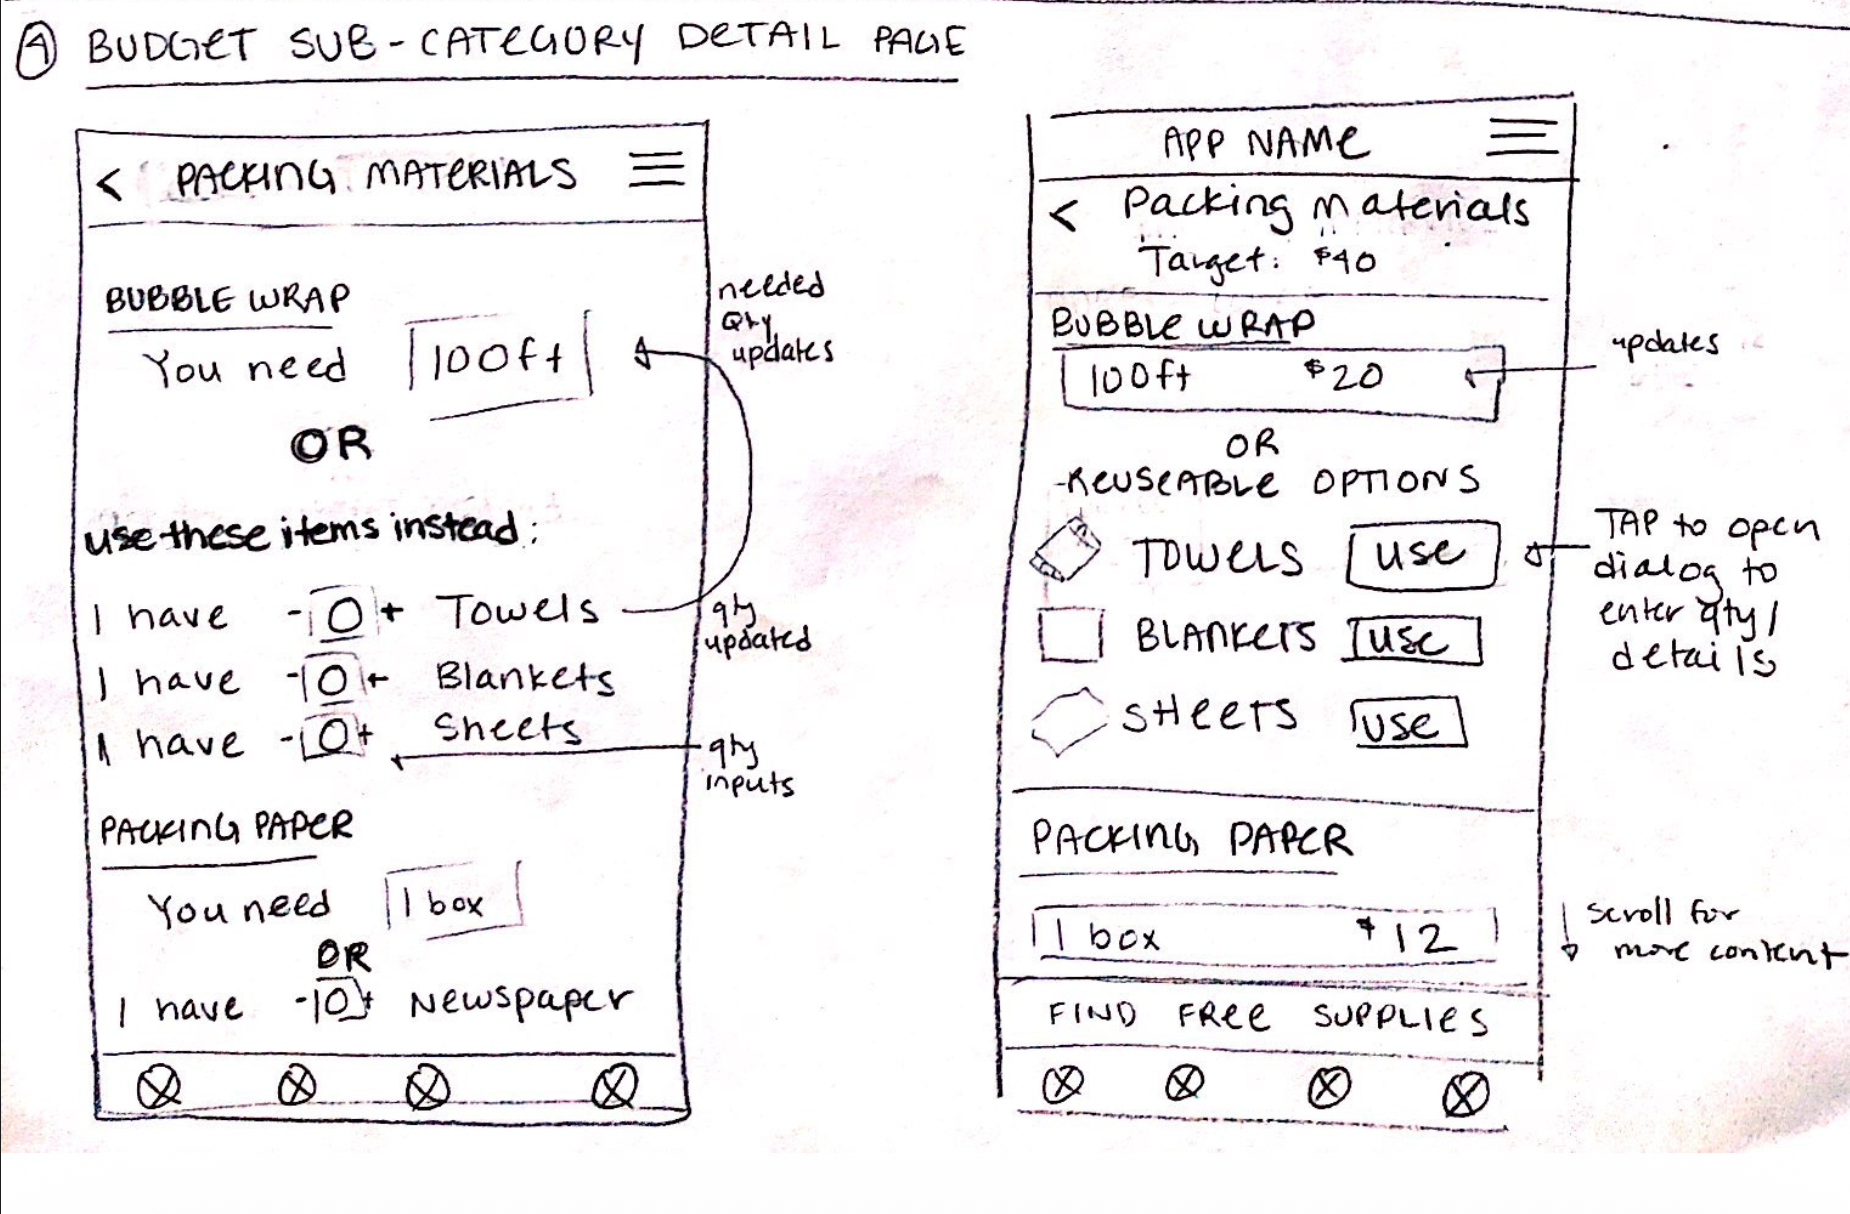 A BUDGET SUB-CATEGORY DETAIL PAGE
< PACKING MATERIALS
BUBBLE WRAP
You need 100ft
OR
use these items instead:
I have - 0 + Towels
I have - 0 + Blankets
I have - 0 + Sheets
PACKING PAPER
You need 1 box
OR
I have - 0 + Newspaper
needed
Qty
updates
qty
updated
qty
inputs
APP NAME
< Packing Materials
Target: $40
BUBBLE WRAP
100ft $20
OR
REUSEABLE OPTIONS
TOWELS use
BLANKETS use
SHEETS use
PACKING PAPER
1 box $12
FIND FREE SUPPLIES
updates
TAP to open
dialog to
enter qty/
details
scroll for
more content